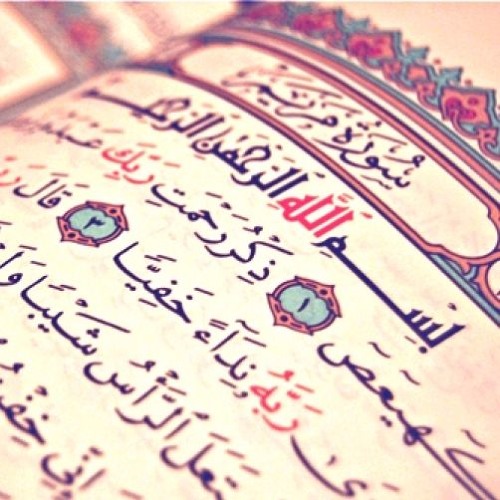 سُورَةُ مَرْيَمَ
بِسْمِ اللَّهِ الرَّحْمَٰنِ الرَّحِيمِ
كٓهيعٓصٓ ١ ذِكْرُ رَحْمَتِ رَبِّكَ عَبْدَهُ
رَبَّهُ نِدَآءً خَفِيًّا ٣ قَالَ رَبِّ
ٱلرَّأْسُ شَيْبًا وَلَمْ
وَإِنِّي خِفْتُ